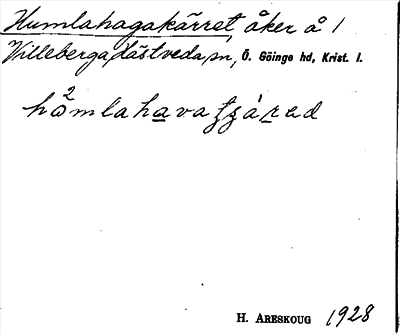 Humlahagakärret, åker å 1
Villeberga, Hästveda sn, Ö. Göinge hd, Krist. l.
H. ARESKOUG 1928